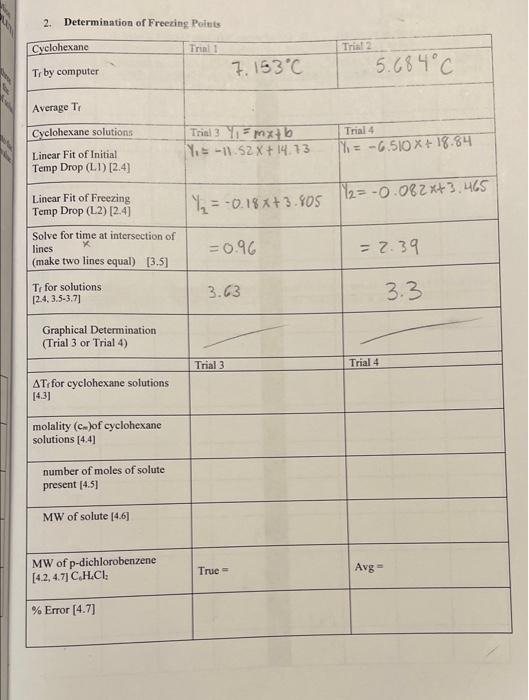 2. Determination of Freezing Points
Cyclohexane Trial 1 Trial 2
Tf by computer 7.153°C 5.684°C
Average Tf
Cyclohexane solutions Trial 3 Y₁ = mx+b Trial 4
Linear Fit of Initial Y₁ = -11.52x + 14.73 Y₁ = -6.510x + 18.84
Temp Drop (L1) [2.4]
Linear Fit of Freezing Y₂ = -0.18x + 3.805 Y₂ = -0.082x + 3.465
Temp Drop (L2) [2.4]
Solve for time at intersection of
lines x = 0.96 = 2.39
(make two lines equal) [3.5]
Tf for solutions 3.63 3.3
[2.4, 3.5-3.7]
Graphical Determination
(Trial 3 or Trial 4)
Trial 3 Trial 4
ΔTf for cyclohexane solutions
[4.3]
molality (cₘ)of cyclohexane
solutions [4.4]
number of moles of solute
present [4.5]
MW of solute [4.6]
MW of p-dichlorobenzene True = Avg =
[4.2, 4.7] C₆H₄Cl₂
% Error [4.7]